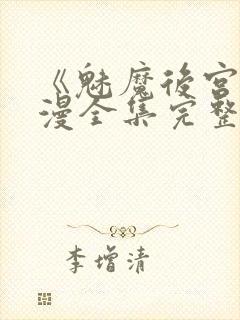 《魅魔後宮
漫全集完整
李增清